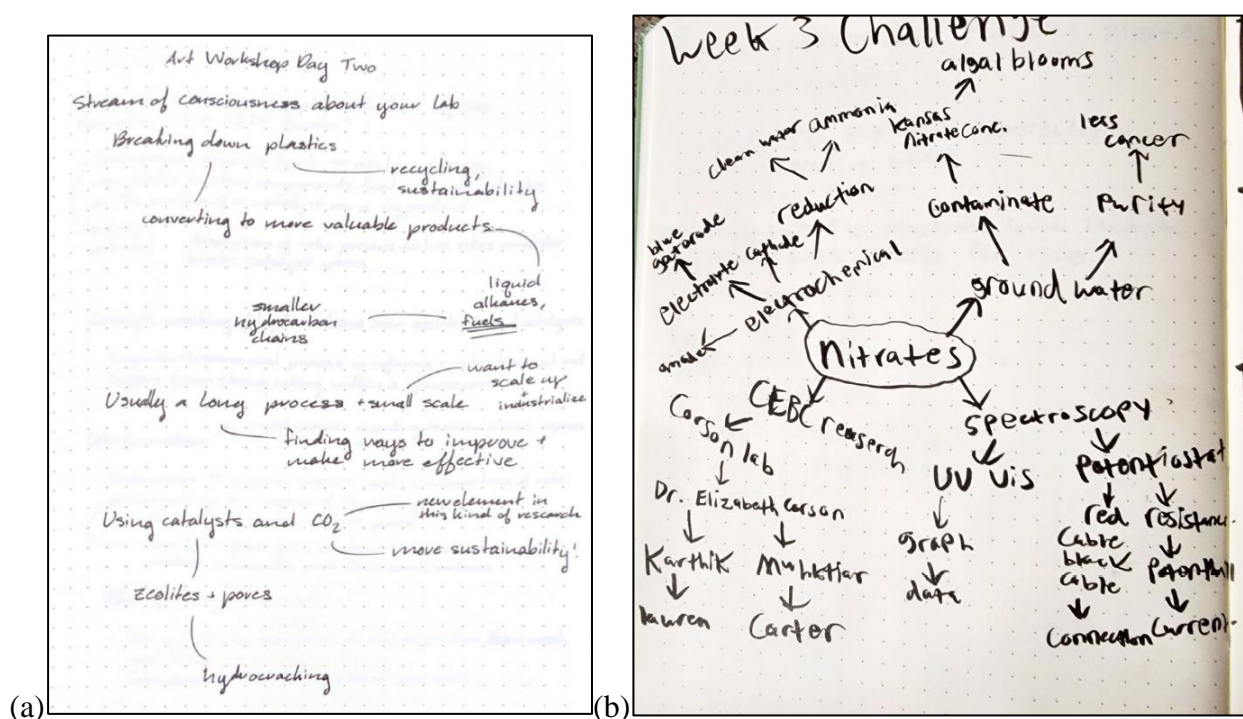 Art Workshop Day Two
Stream of consciousness about your lab
Breaking down plastics
recycling,
sustainability
converting to more valuable products
liquid
alkanes,
fuels
smaller
hydrocarbon
chains
want to
scale up
+
industrialize
Usually a long process + small scale
finding ways to improve +
make more effective
Using catalysts and CO2
new element in
this kind of research
more sustainability!
Zeolites + pores
hydrocracking
(a)
Week 3 Challenge
algal blooms
clean water
ammonia
kansas
nitrate conc.
less
cancer
reduction
contaminate
purity
blue
gatorade
electrolyte
cathode
electrochemical
ground water
anode
Nitrates
CEBC reaserch
spectroscopy
Corson lab
UV Vis
potentiostat
Dr. Elizabeth Corson
red
cable
resistance
graph
black
cable
Karthik
Muhktiar
data
lauren
Carter
connection
Current
(b)